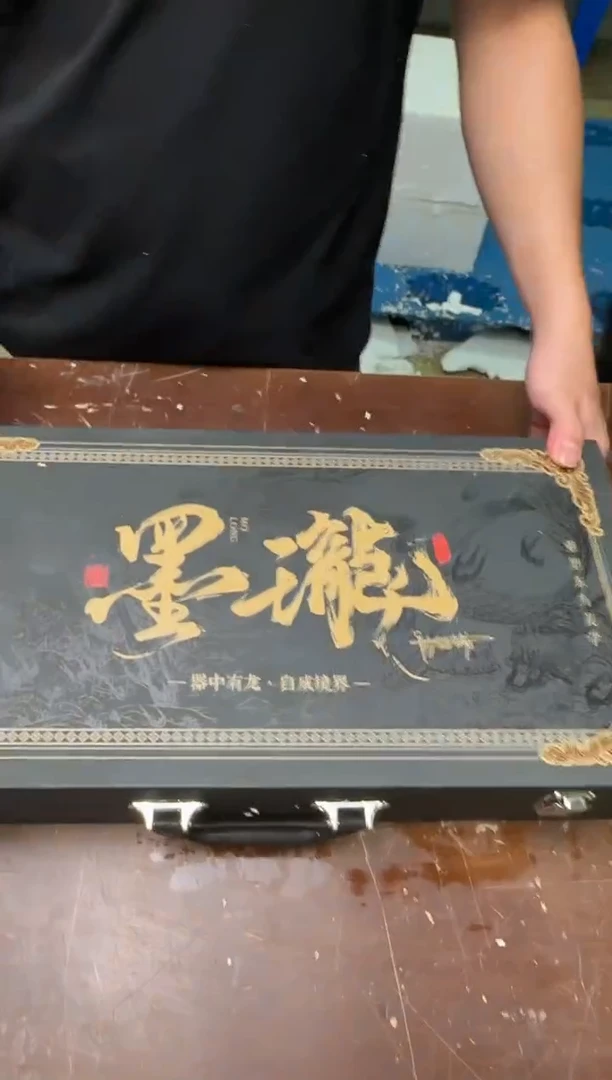 墨瀧
MO
LONG
器中有龙·自成境界